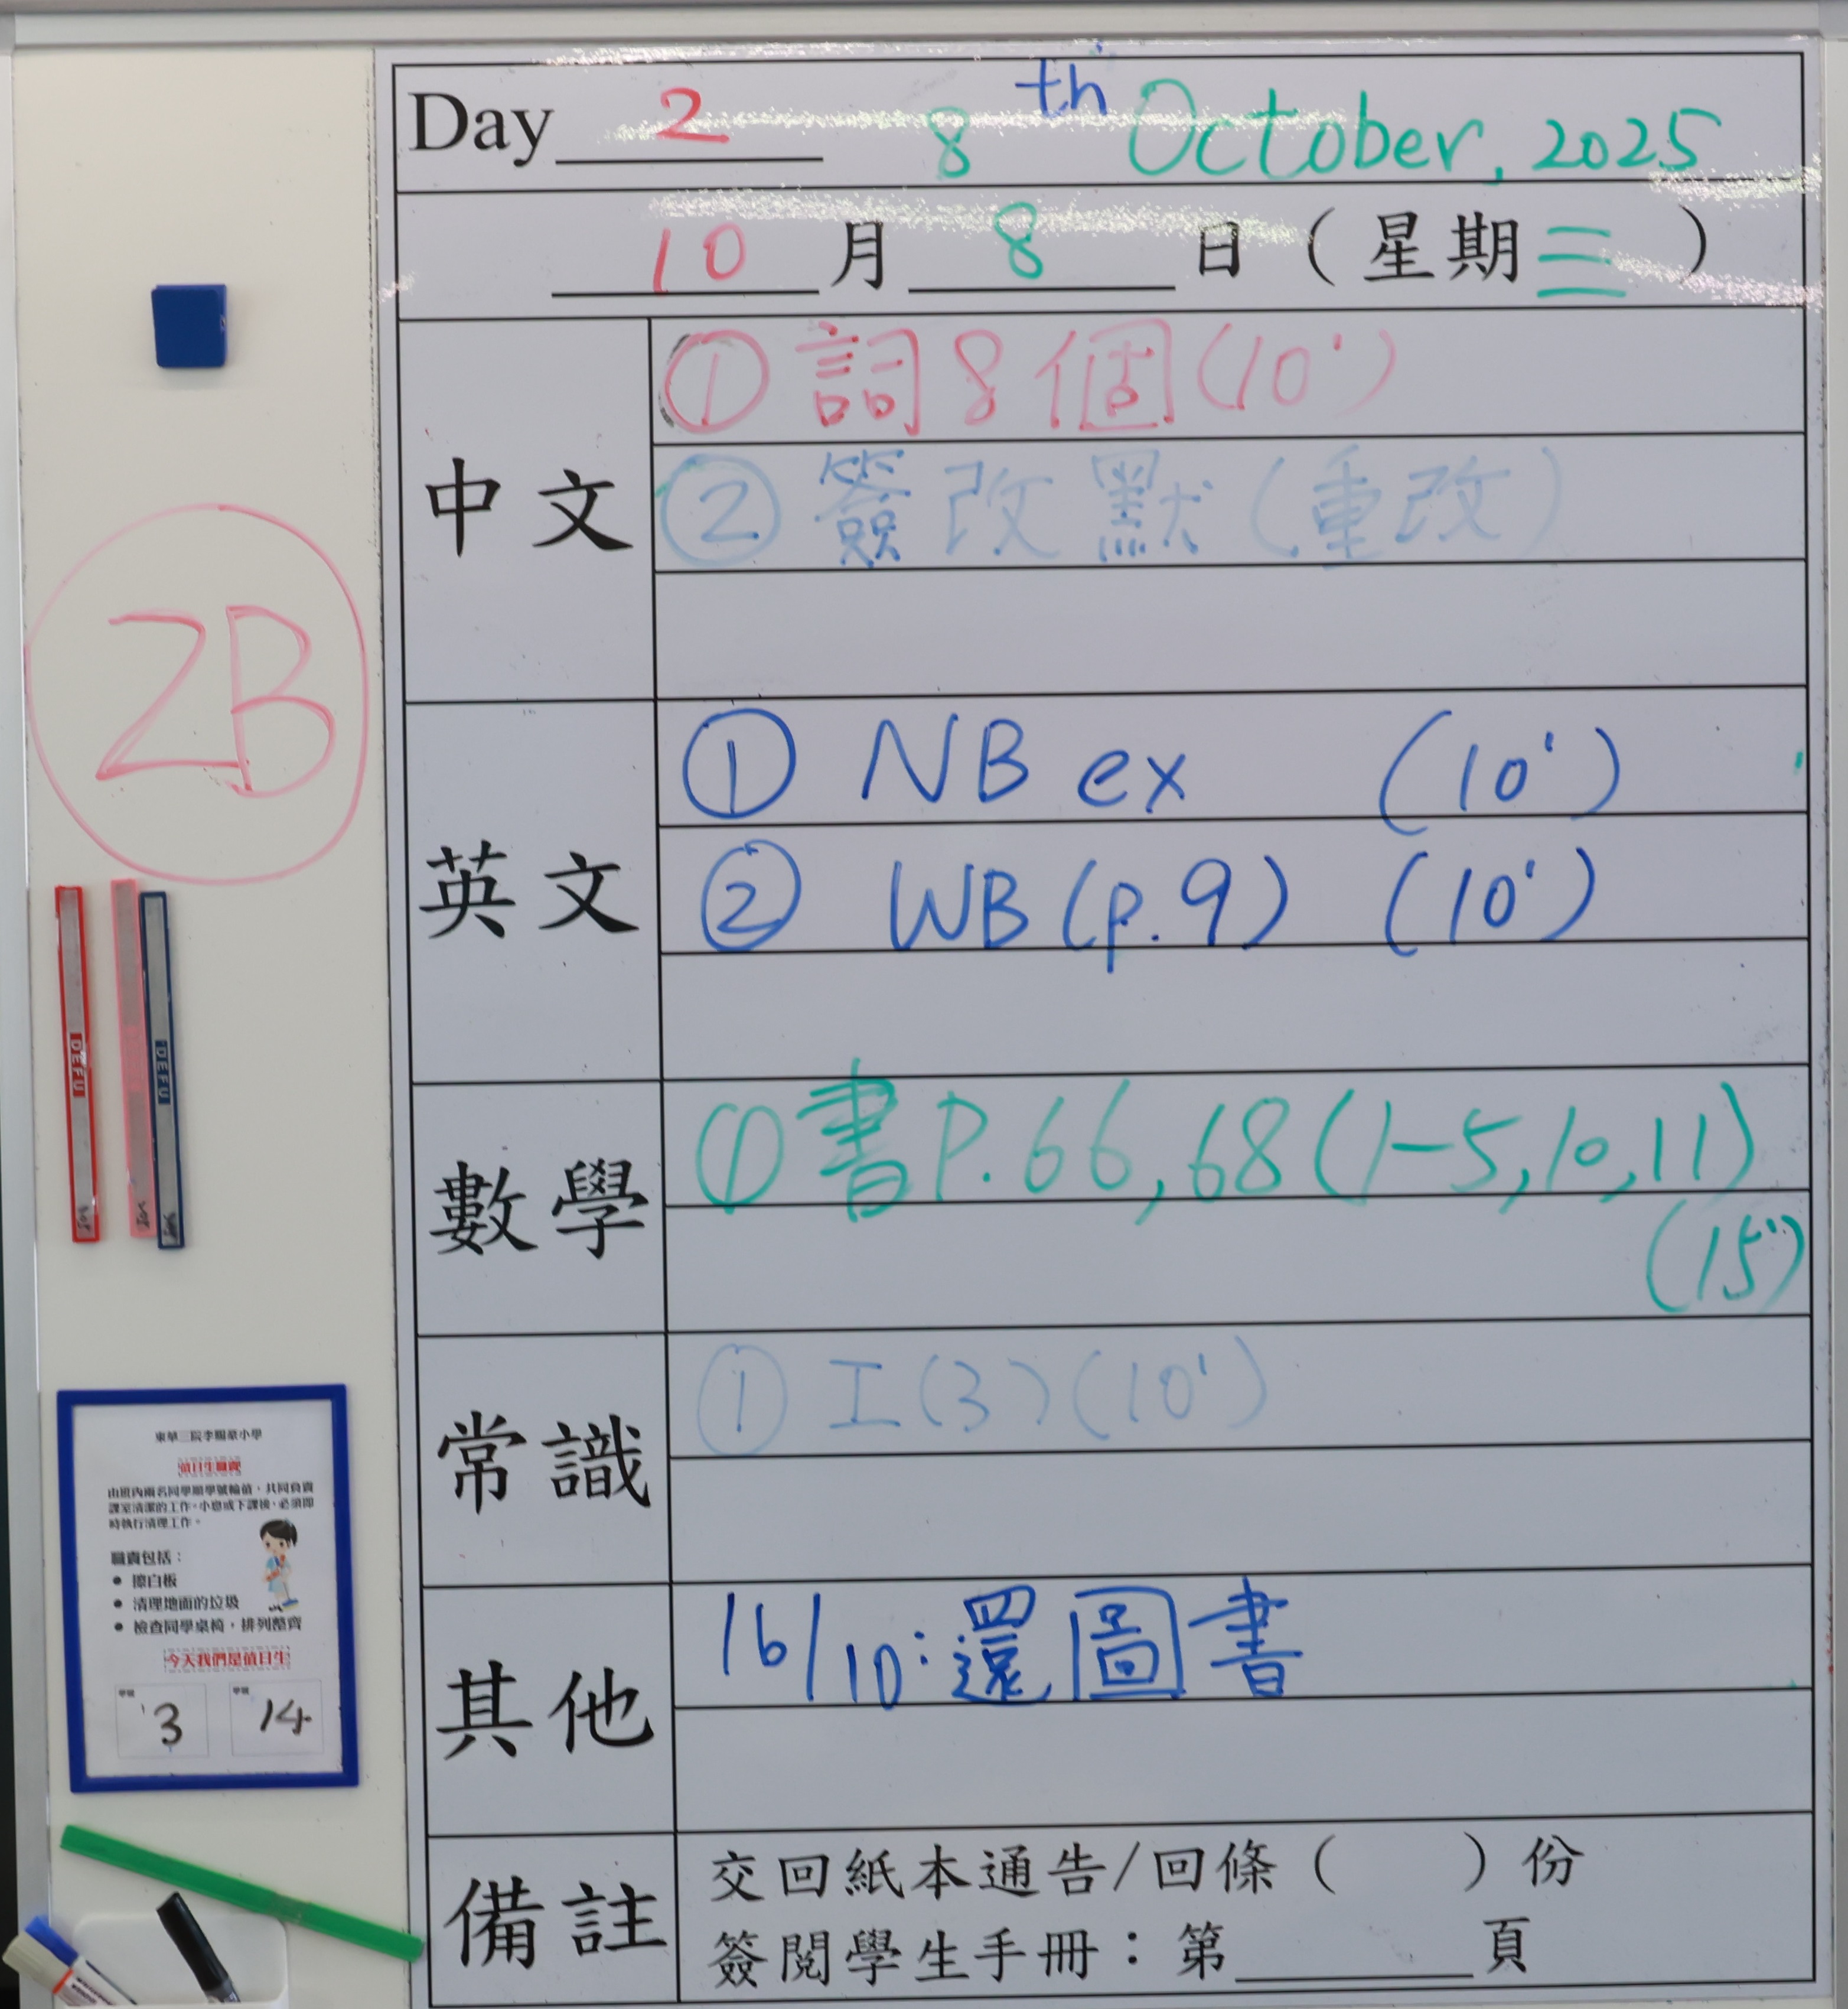 Day 2 8th October, 2025
10月8日(星期三)
中文
① 詞8個(10')
② 簽改默(重改)
英文
① NB ex (10')
② WB (p.9) (10')
數學
① 書P.66,68(1-5,10,11)
(15')
常識
① 工(3)(10')
其他
16/10:還圖書
備註
交回紙本通告/回條( )份
簽閱學生手冊:第______頁
2B
DEFU
DEFU
值日生職責
由班內兩名同學順學號輪值,共同負責
課室清潔的工作。小息或下課後,必須即
時執行清理工作。
職責包括:
• 擦白板
• 清理地面的垃圾
• 檢查同學桌椅,排列整齊
今天我們是值日生
學號
3
學號
14